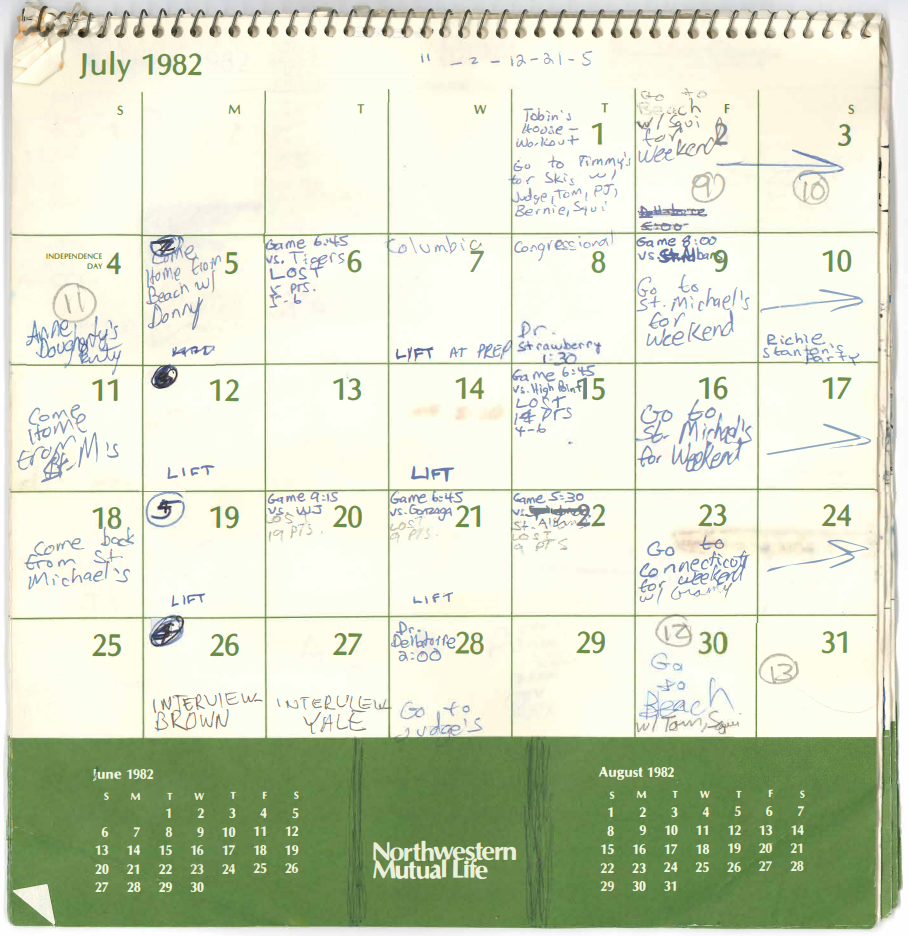 July 1982
" - 2 - 12-21-5
S M T W T F S
Tobin's
House -
Workout
1
Go to Timmy's
for Skis w/
Judge, Tom, PJ,
Bernie, Squi
Go to
Beach
w/ Squi
for
Weekend
2
9
5:00
3
10
INDEPENDENCE
DAY 4
11
Anne
Dougherty's
Party
5
Come
Home from
Beach w/
Donny
6
Game 6:45
vs. Tigers
LOST
5 PTS.
5-6
Columbia
7
LIFT AT PREP
Congressional
8
Dr.
Strawberry
1:30
Game 8:00
vs. St. Albans
9
Go to
St. Michael's
for
Weekend
10
Richie
Stanton's
Party
11
Come
Home
From
St. M's
12
LIFT
13
14
LIFT
Game 6:45
vs. High Point
15
LOST
14 PTS
4-6
16
Go to
St. Michael's
for Weekend
17
18
Come back
from St.
Michael's
5
19
LIFT
Game 9:15
vs. WJ
20
LOST
19 PTS.
Game 6:45
vs. Gonzaga
21
LOST
9 PTS.
LIFT
Game 5:30
vs.
St. Albans
22
LOST
9 PTS
23
Go to
Connecticut
for weekend
w/ Granny
24
25
4
26
INTERVIEW
BROWN
27
INTERVIEW
YALE
Dr.
Delbarre
2:00
28
Go to
Judge's
29
12
30
Go
to
Beach
w/ Tom, Squi
31
13
June 1982
S M T W T F S
1 2 3 4 5
6 7 8 9 10 11 12
13 14 15 16 17 18 19
20 21 22 23 24 25 26
27 28 29 30
Northwestern
Mutual Life
August 1982
S M T W T F S
1 2 3 4 5 6 7
8 9 10 11 12 13 14
15 16 17 18 19 20 21
22 23 24 25 26 27 28
29 30 31